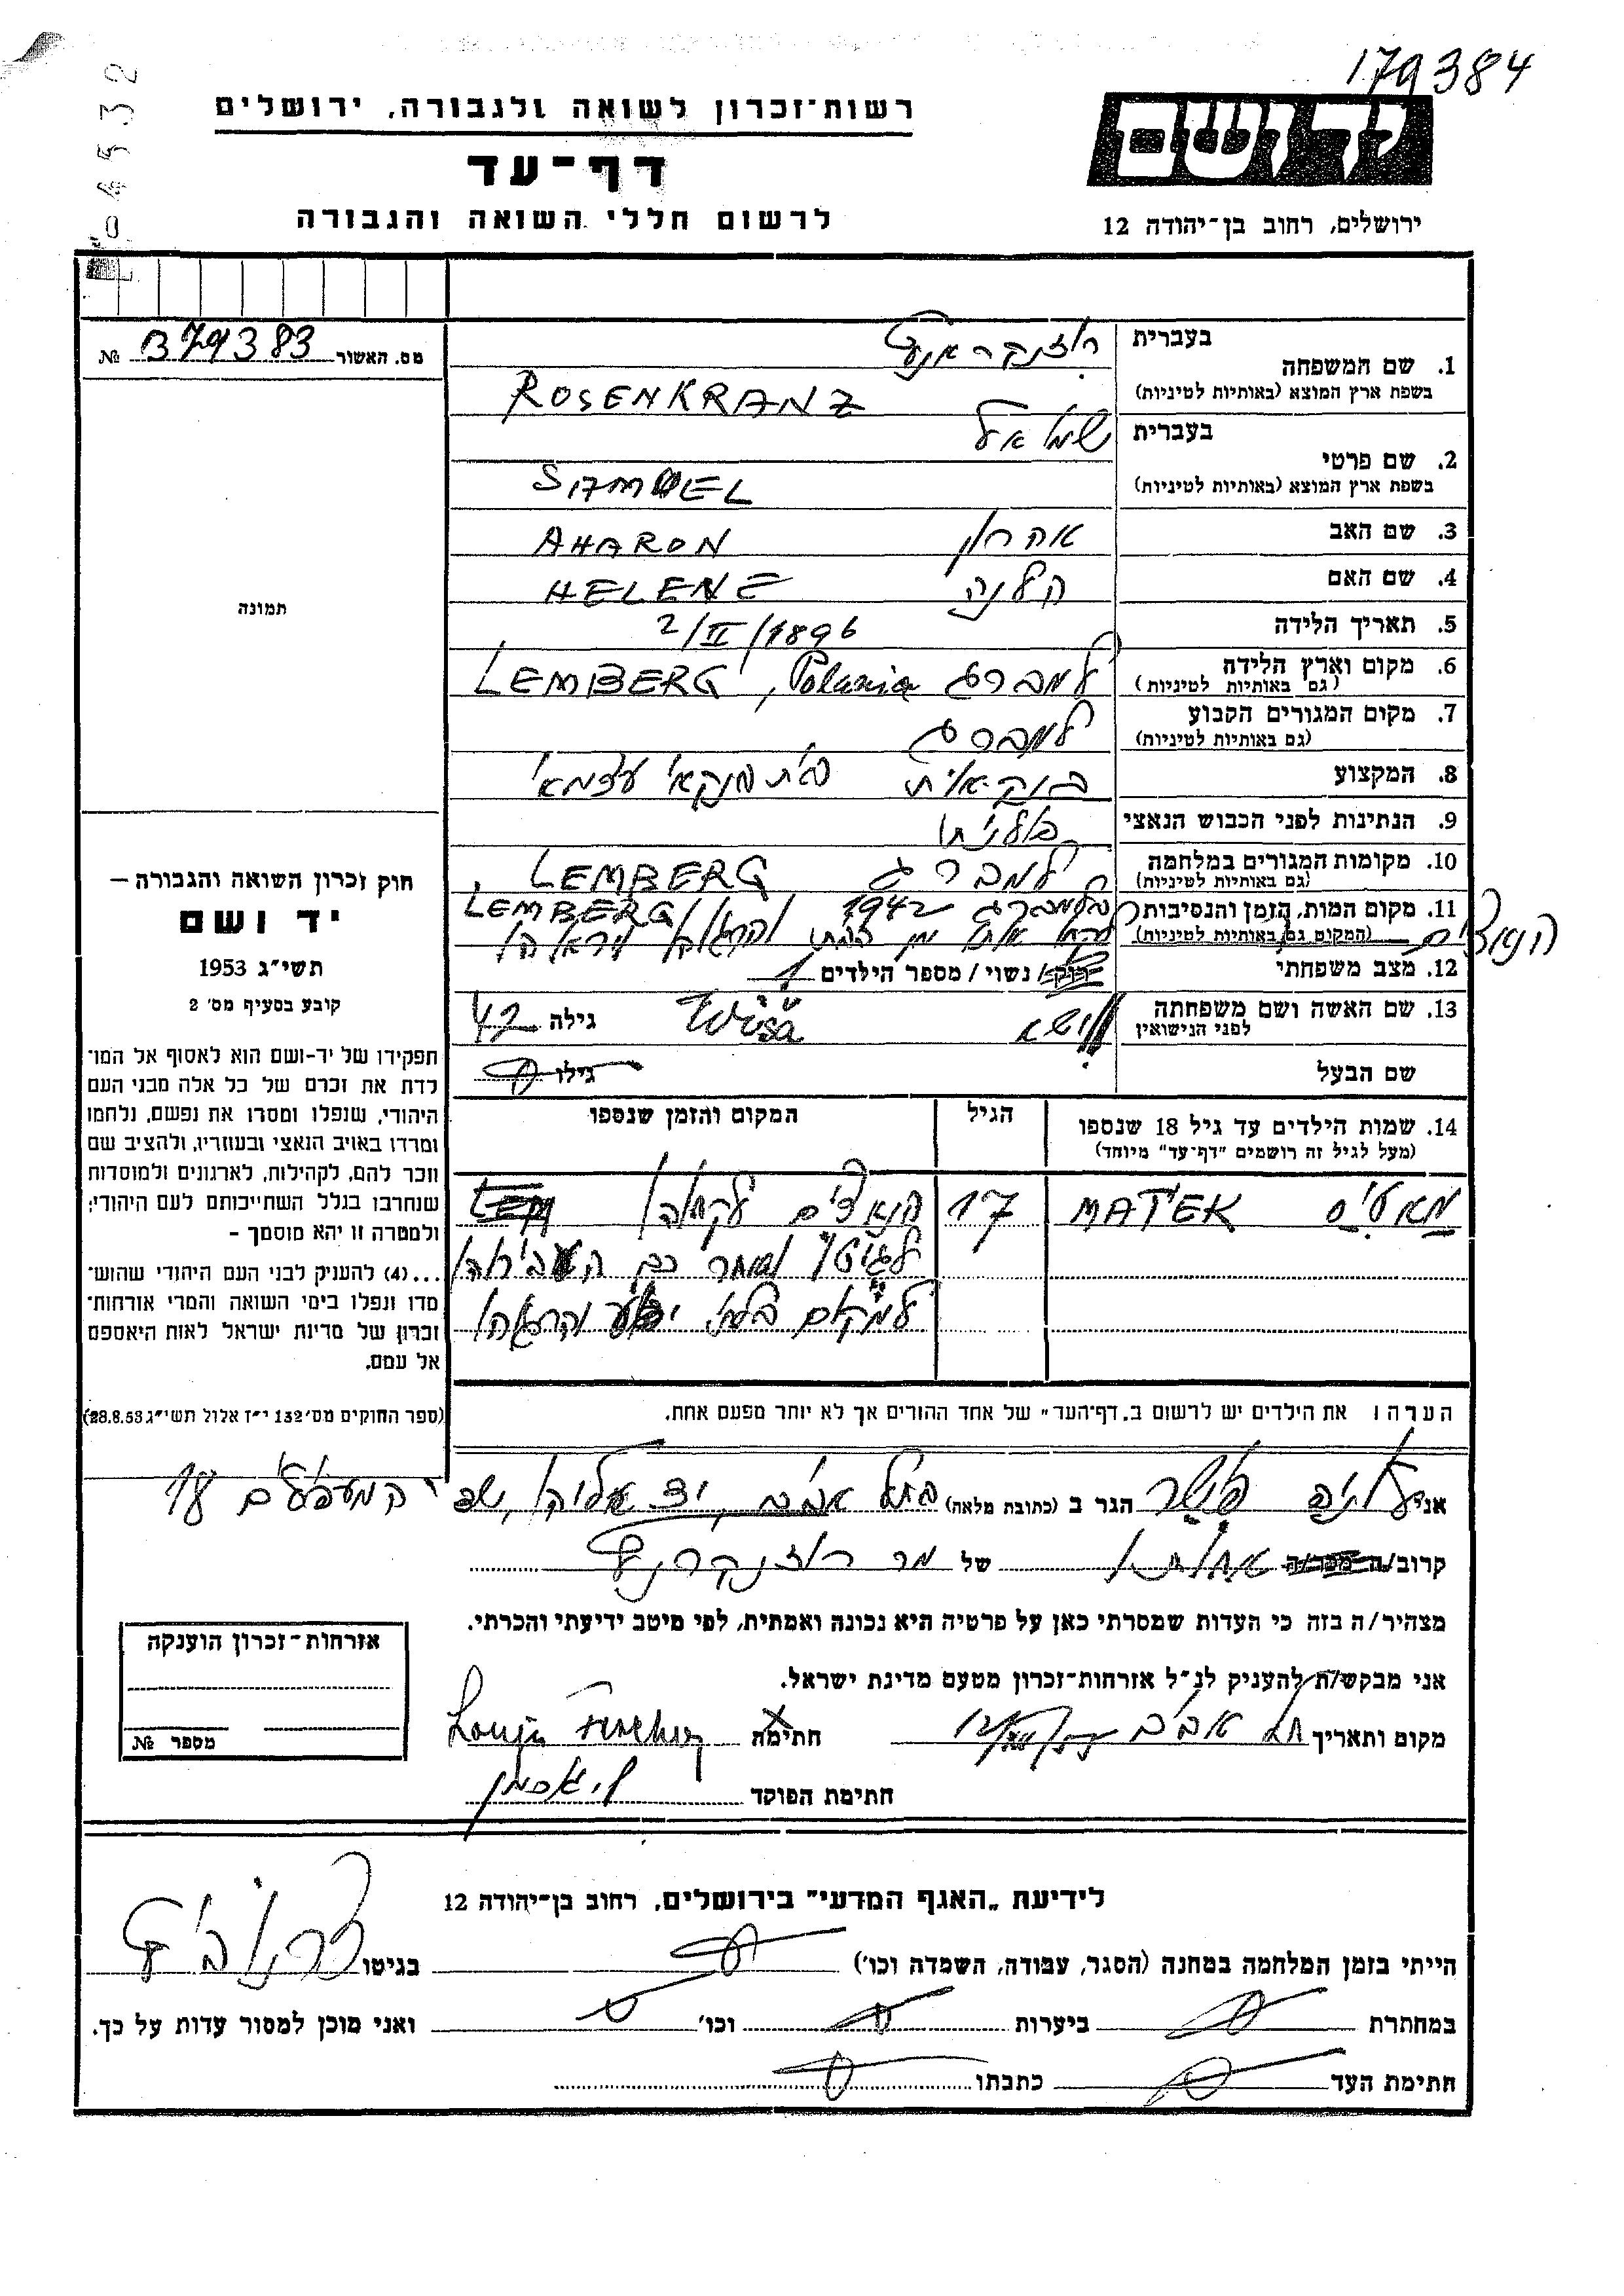 179384
רשות־זכרון לשואה ולגבורה, ירושלים
יד ושם
דף־עד
לרשום חללי השואה והגבורה
ירושלים, רחוב בן־יהודה 12
מס. האשור 379383 №
1. שם המשפחה
בעברית רוזנקראנץ
בשפת ארץ המוצא (באותיות לטיניות) ROSENKRANZ
2. שם פרטי
בעברית שמואל
בשפת ארץ המוצא (באותיות לטיניות) SAMUEL
3. שם האב אהרון AHARON
4. שם האם הלנה HELENE
5. תאריך הלידה 2/II/1896
6. מקום וארץ הלידה (גם באותיות לטיניות) למברג LEMBERG, Polania
7. מקום המגורים הקבוע (גם באותיות לטיניות) למברג
8. המקצוע בנקאית בית בנקאי עצמאי
9. הנתינות לפני הכבוש הנאצי פולנית
10. מקומות המגורים במלחמה (גם באותיות לטיניות) למברג LEMBERG
11. מקום המות, הזמן והנסיבות (המקום גם באותיות לטיניות) בלמברג 1942 LEMBERG
הנאצים לקחו אותו מן הבית
12. מצב משפחתי רוק/ נשוי / מספר הילדים 1
13. שם האשה ושם משפחתה לפני הנישואין Wisia גילה 42
שם הבעל גילו
14. שמות הילדים עד גיל 18 שנספו (מעל לגיל זה רושמים "דף־עד" מיוחד) הגיל המקום והזמן שנספו
MATEK 17 הנאצים לקחוהו
לגיטו ואחר כך העבירוהו
למקום בלתי ידוע והרגוהו
תמונה
חוק זכרון השואה והגבורה —
יד ושם
תשי״ג 1953
קובע בסעיף מס׳ 2
תפקידו של יד־ושם הוא לאסוף אל המו־
לדת את זכרם של כל אלה מבני העם
היהודי, שנפלו ומסרו את נפשם, נלחמו
ומרדו באויב הנאצי ובעוזריו, ולהציב שם
וזכר להם, לקהילות, לארגונים ולמוסדות
שנחרבו בגלל השתייכותם לעם היהודי;
ולמטרה זו יהא מוסמך —
...(4) להעניק לבני העם היהודי שהוש־
מדו ונפלו בימי השואה והמרי אזרחות־
זכרון של מדינת ישראל לאות היאספם
אל עמם.
(ספר החוקים מס׳ 132 י״ז אלול תשי״ג 28.8.53)
הערה: את הילדים יש לרשום ב„דף־העד" של אחד ההורים אך לא יותר מפעם אחת.
אני פישר הגר ב (כתובת מלאה) בתל אביב, יד אליהו, המעפילים
קרוב/ה אחותו של מר רוזנקרנץ
מצהיר/ה בזה כי העדות שמסרתי כאן על פרטיה היא נכונה ואמתית, לפי מיטב ידיעתי והכרתי.
אני מבקש/ת להעניק לנ״ל אזרחות־זכרון מטעם מדינת ישראל.
מקום ותאריך תל אביב חתימה
חתימת הפוקד
אזרחות־זכרון הוענקה
מספר №
לידיעת „האגף המדעי" בירושלים, רחוב בן־יהודה 12
הייתי בזמן המלחמה במחנה (הסגר, עבודה, השמדה וכו׳) בגיטו
במחתרת ביערות וכו׳ ואני מוכן למסור עדות על כך.
חתימת העד כתבתו